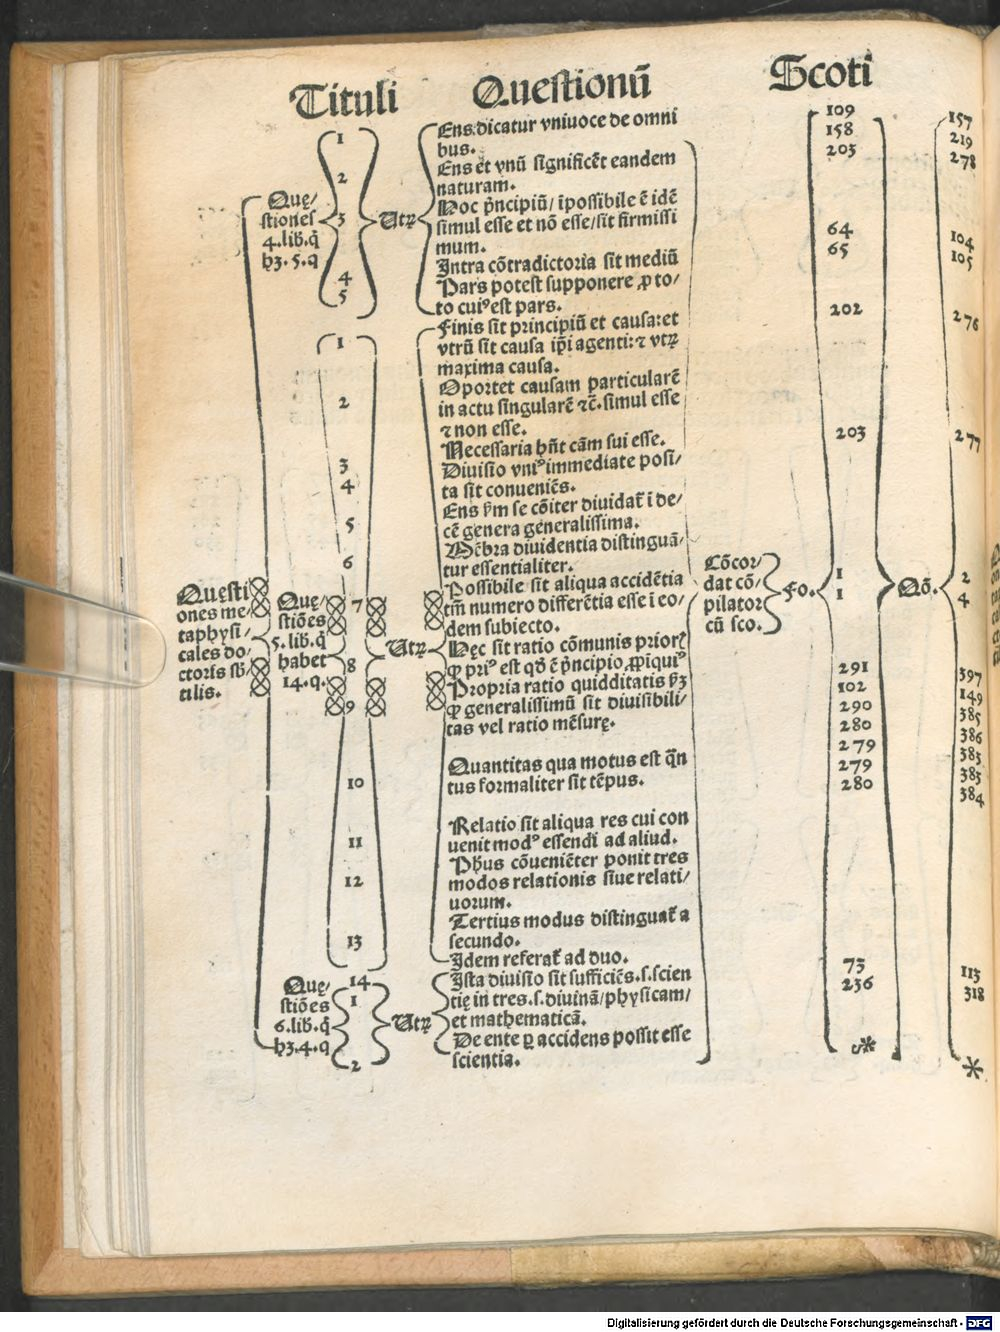 Tituli Questionū Scoti
Questi
ones me-
taphysi/
cales do/
ctoris sb/
tilis.
Quę/
stiones
4.lib.q̄
hꝫ.5.q
1
2
3
4
5
Utꝝ
Ens dicatur vniuoce de omni
bus.
Ens et vnū significēt eandem
naturam.
Hoc p̄ncipiū/ īpossibile ē idē
simul esse et nō esse/sit firmissi
mum.
Intra cōtradictoria sit mediū
Pars potest supponere ꝓ to/
to cuiꝰ est pars.
Quę/
stiōes
5.lib.q̄
habet
14.q.
1
2
3
4
5
6
7
8
9
10
11
12
13
14
Utꝝ
Finis sit principiū et causa:et
vtrū sit causa ip̄i agenti:⁊ vtꝝ
maxima causa.
Oportet causam particularē
in actu singularē ⁊c̄.simul esse
⁊ non esse.
Necessaria hn̄t cām sui esse.
Diuisio vniꝰ immediate posi/
ta sit conueniēs.
Ens ẜm se cōiter diuidat̄ ī de/
cē genera generalissima.
Mēbra diuidentia distinguā/
tur essentialiter.
Possibile sit aliqua accidētia
tm̄ numero differētia esse ī eo/
dem subiecto.
Hęc sit ratio cōmunis priorꝝ
ꝙ priꝰ est qd̄ ē p̄ncipio ꝓpiquiꝰ
Propria ratio quidditatis ẜꝫ
ꝙ generalissimū sit diuisibili/
tas vel ratio mēsurę.
Quantitas qua motus est q̄n
tus formaliter sit tēpus.
Relatio sit aliqua res cui con
uenit modꝰ essendi ad aliud.
Ph̄us cōueniēter ponit tres
modos relationis siue relati/
uorum.
Tertius modus distinguat̄ a
secundo.
Idem referat̄ ad duo.
Quę/
stiōes
6.lib.q̄
hꝫ.4.q
1
2
Utꝝ
Ista diuisio sit sufficiēs.s.scien
tię in tres.s.diuinā/physicam/
et mathematicā.
De ente ꝑ accidens possit esse
scientia.
Cōcor/
dat cō/
pilator
cū sco.
Fo.
109
158
203
64
65
202
203
1
1
291
102
290
280
279
279
280
73
236
Qō.
157
219
278
104
105
276
277
2
4
397
149
385
386
383
383
384
113
318
*
Digitalisierung gefördert durch die Deutsche Forschungsgemeinschaft - DFG